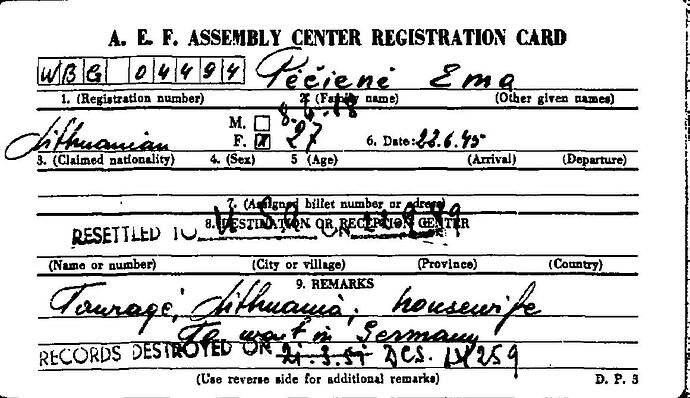 A. E. F. ASSEMBLY CENTER REGISTRATION CARD
WBG 04494 Pėčienė Ema
1. (Registration number) 2. (Family name) (Other given names)
M.
Lithuanian F. X 27 6. Date: 22.6.45
3. (Claimed nationality) 4. (Sex) 5 (Age) (Arrival) (Departure)
7. (Assigned billet number or adress)
8. DESTINATION OR RECEPTION CENTER
RESETTLED TO U S A ON
(Name or number) (City or village) (Province) (Country)
9. REMARKS
Tauragė, Lithuania, housewife
in Germany
RECORDS DESTROYED ON 21.3.51 DCS.
(Use reverse side for additional remarks) D. P. 3